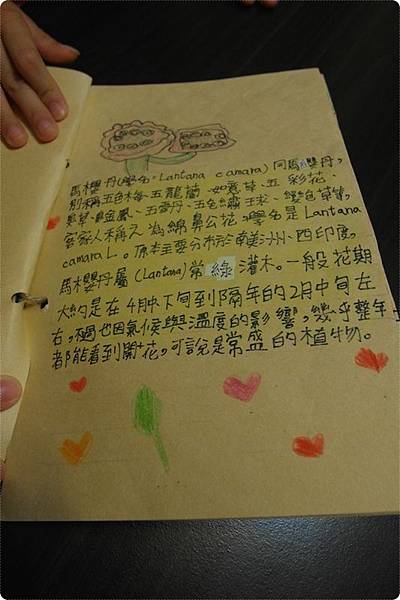 馬櫻丹(學名:Lantana camara)同馬櫻丹,
別稱五色梅、五龍蘭、如意草、五彩花、
臭草、臭金鳳、五雷丹、五色繡球、變色草等,
客家人稱之為綿鼻公花,學名是Lantana
camara L。原本主要分布於南美洲、西印度,
馬櫻丹屬(Lantana)常綠灌木。一般花期
大約是在4月中下旬到隔年的2月中旬左
右,也因氣候與溫度的影響,幾乎整年
都能看到開花,可說是常盛的植物。